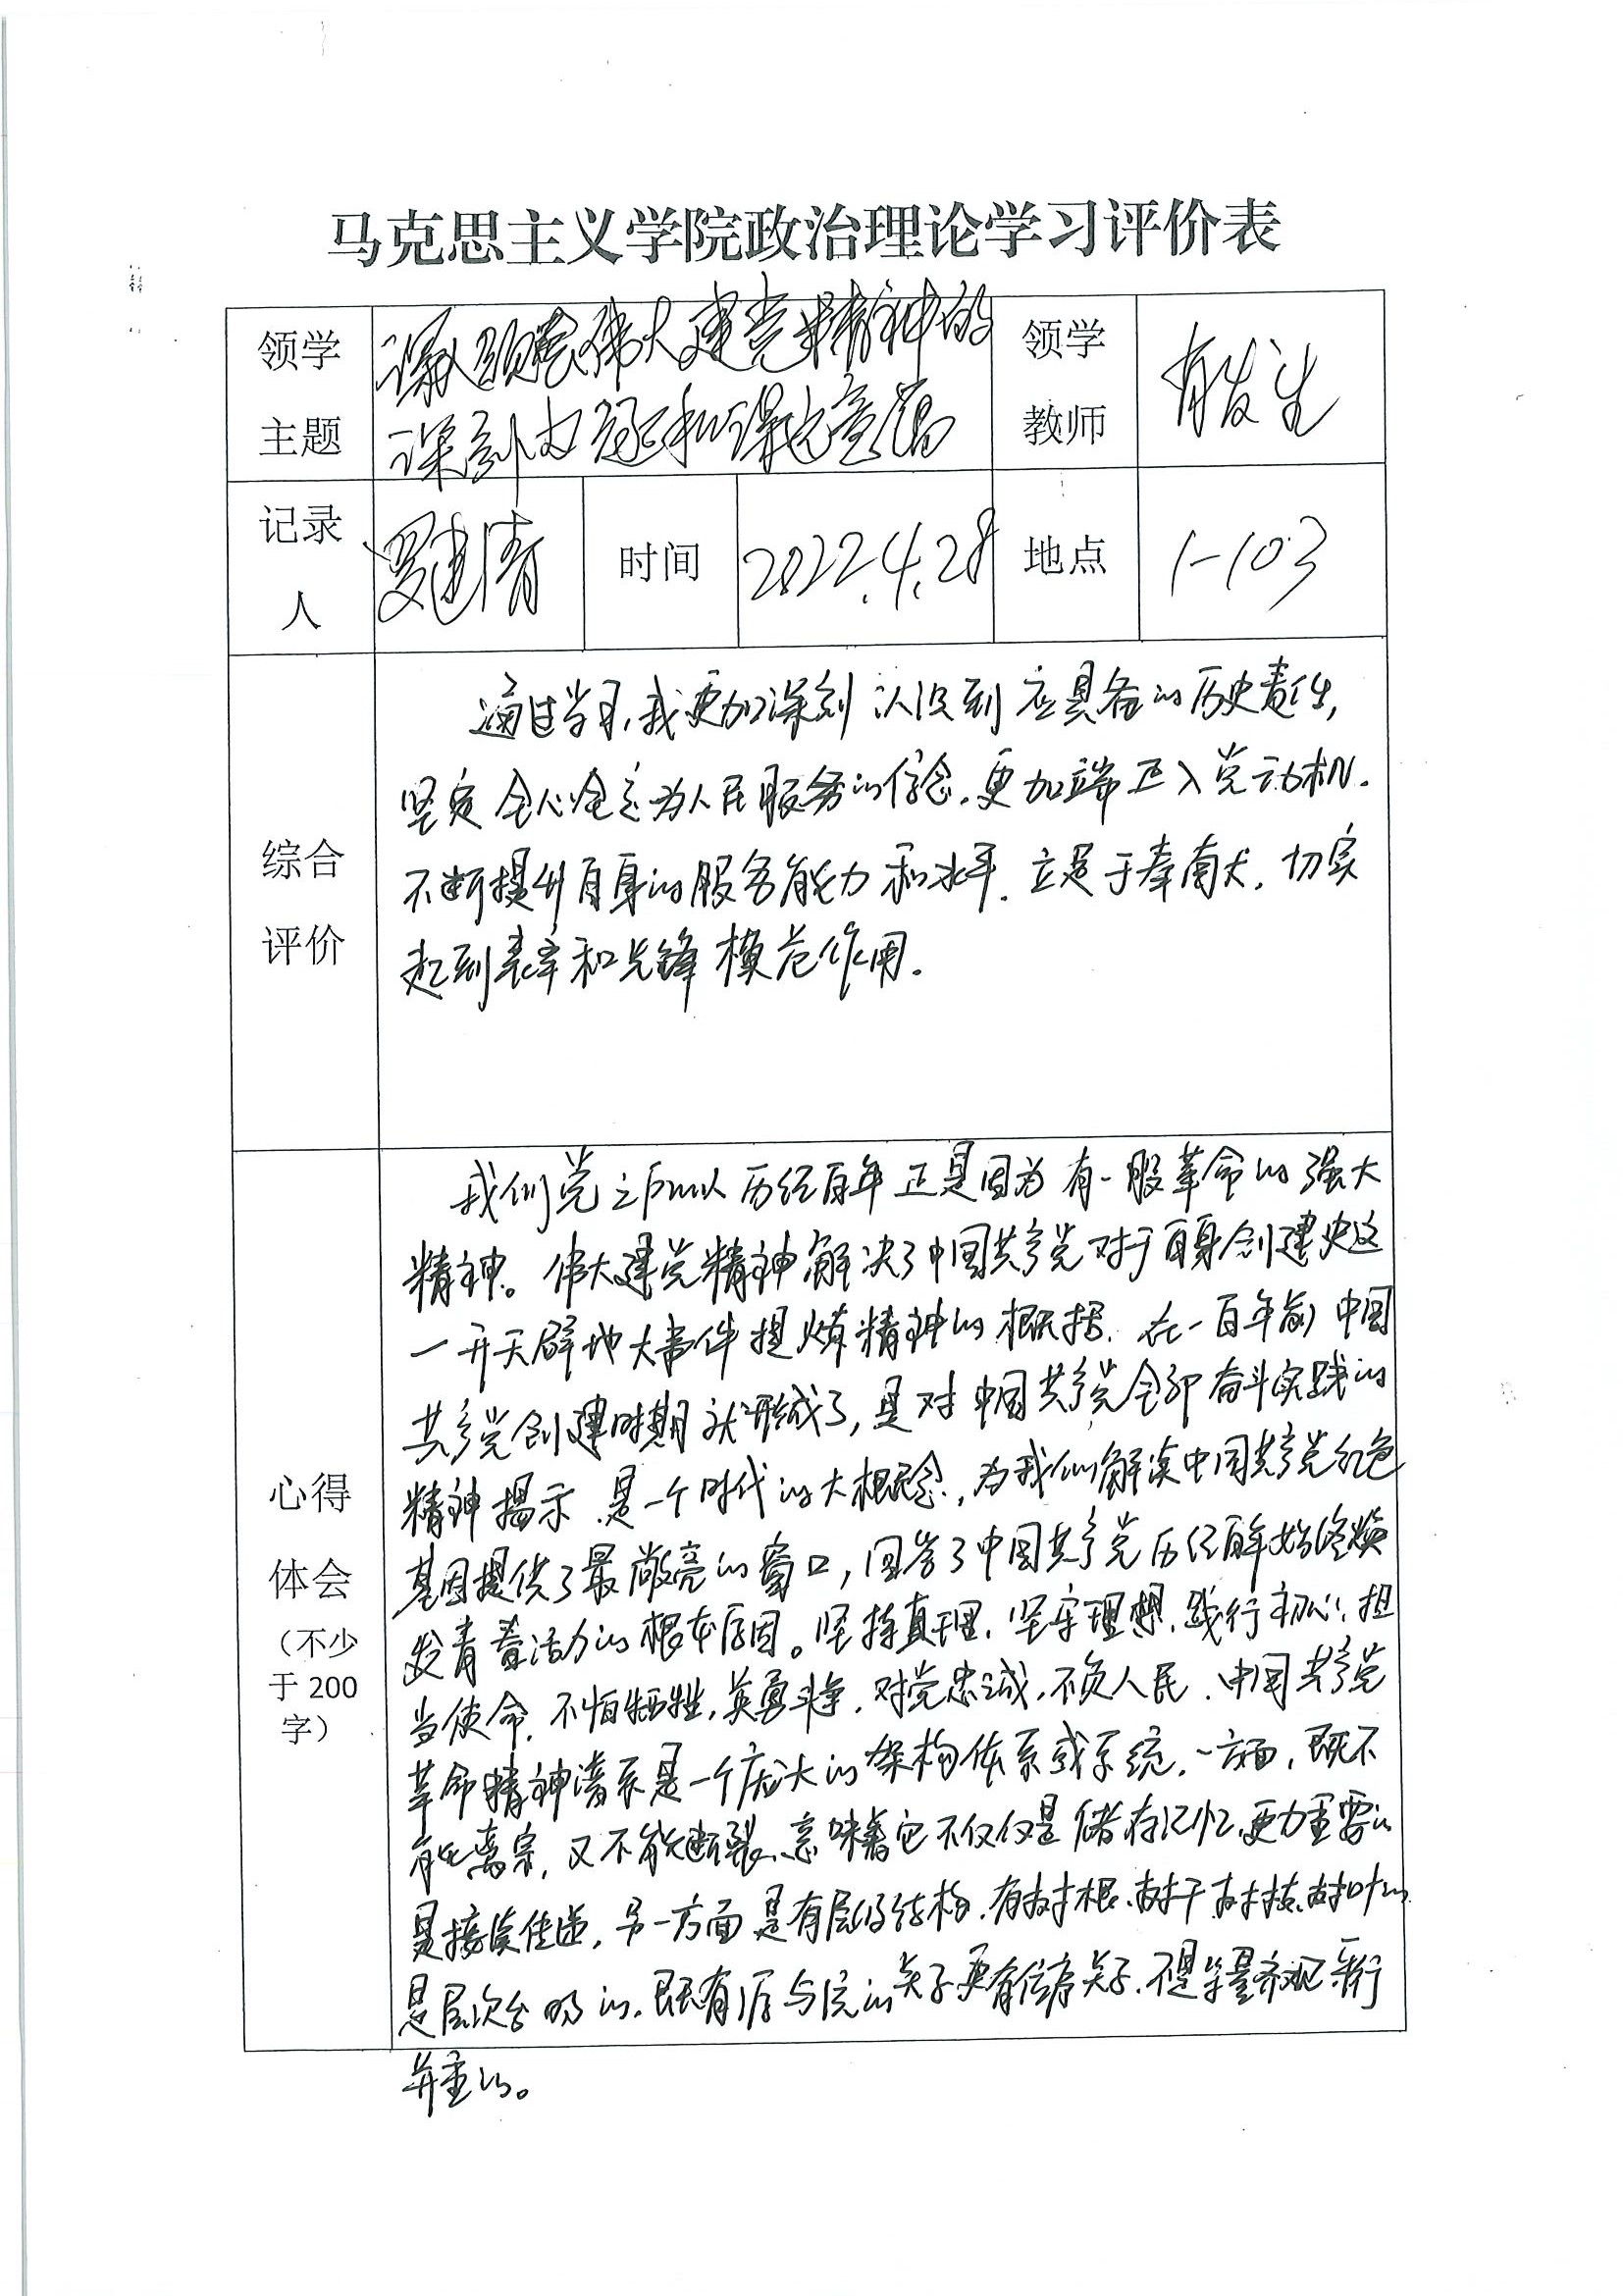 马克思主义学院政治理论学习评价表
领学主题
深入领会伟大建党精神的
深刻内涵和课题意蕴
领学教师
有发生
记录人
罗建清
时间
2022.4.28
地点
1-103
综合评价
通过学习,我更加深刻认识到应具备的历史责任,
坚定全心全意为人民服务的信念,更加端正入党动机.
不断提升自身的服务能力和水平.立足于奉献,切实
起到表率和先锋模范作用。
心得体会
(不少于200字)
我们党之所以历经百年正是因为有一股革命的强大
精神。伟大建党精神解决了中国共产党对于自身创建史这
一开天辟地大事件提炼精神的概括.在一百年前中国
共产党创建时期就形成了,是对中国共产党全部奋斗实践的
精神揭示.是一个时代的大概念,为我们解读中国共产党红色
基因提供了最敞亮的窗口,回答了中国共产党历经百年始终焕
发青春活力的根本原因。坚持真理、坚守理想,践行初心、担
当使命.不怕牺牲,英勇斗争.对党忠诚,不负人民.中国共产党
革命精神谱系是一个庞大的架构体系或系统.一方面,既不
能离宗,又不能断裂、意味着它不仅仅是储存记忆,更为重要的
是接续传递,另一方面是有层级结构.有树根、树干、树枝、树叶的
是层次分明的.既有源与流的关系更有位序关系.不是等量齐观平行
并重的。